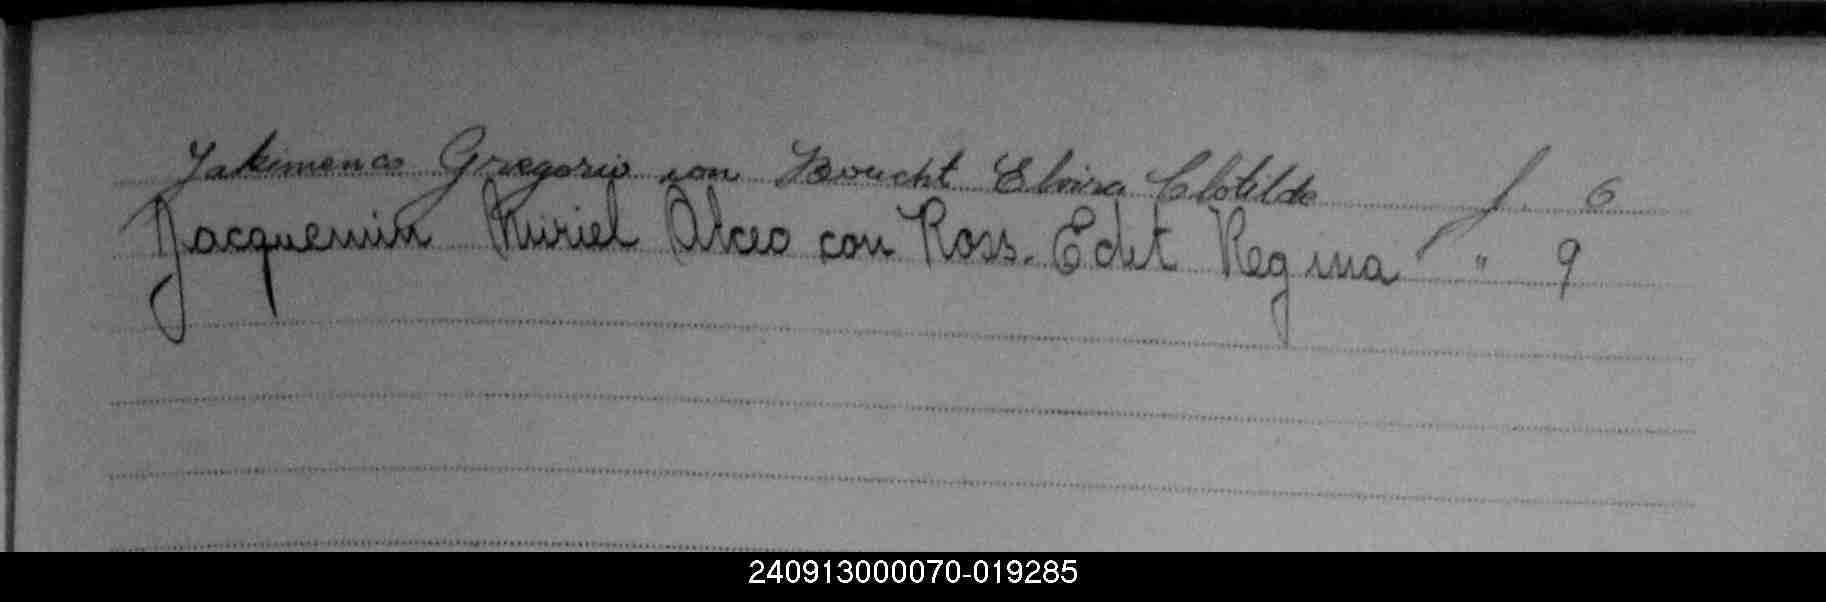 Jakimenco Gregorio con Boucht Elvira Clotilde f. 6
Jacquemin Muriel Alceo con Ross. Edit Regina " 9
240913000070-019285